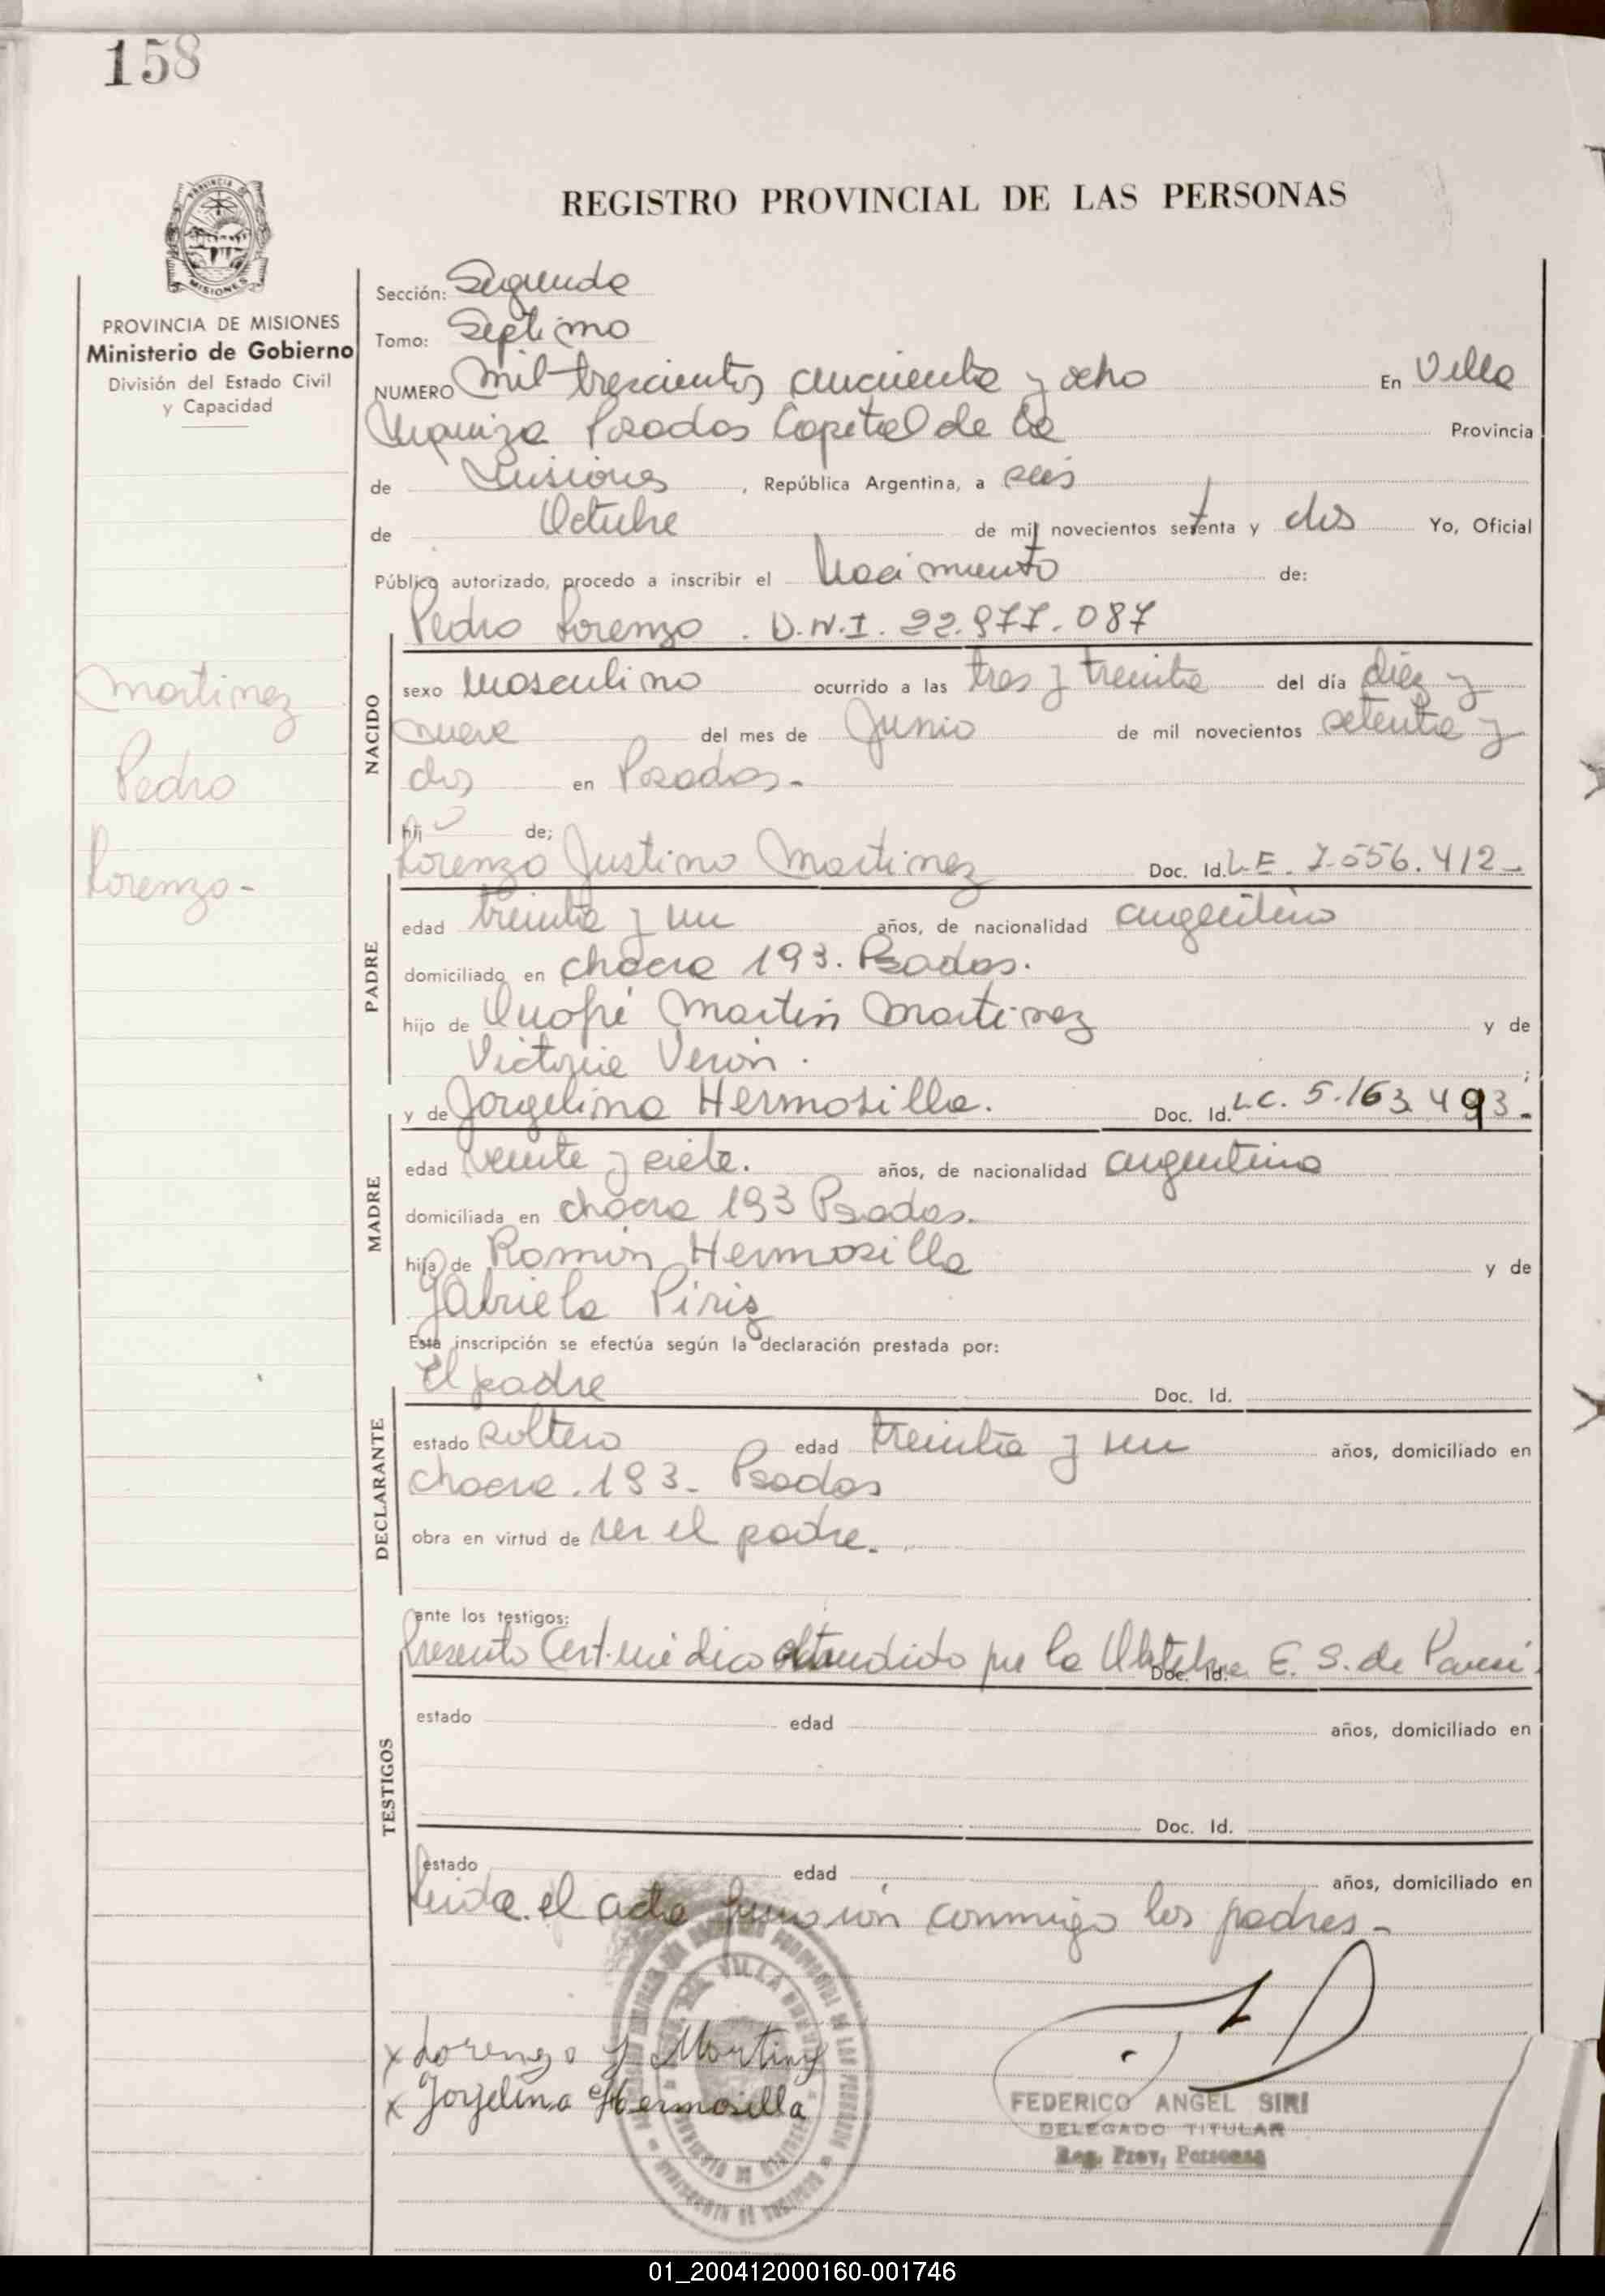 158
REGISTRO PROVINCIAL DE LAS PERSONAS
PROVINCIA DE MISIONES
Ministerio de Gobierno
División del Estado Civil
y Capacidad
Martinez
Pedro
Lorenzo-
Sección: Segunda
Tomo: Septimo
NUMERO Mil trescientos cincuenta y ocho En Villa
Urquiza Posadas Capital de la Provincia
de Misiones, República Argentina, a seis
de Octubre de mil novecientos setenta y dos Yo, Oficial
Público autorizado, procedo a inscribir el Nacimiento de:
Pedro Lorenzo. D.N.I. 22.977.087
NACIDO
sexo Masculino ocurrido a las tres y treinta del día diez y
nueve del mes de Junio de mil novecientos setenta y
dos en Posadas.-
hijo de;
Lorenzo Justino Martinez Doc. Id. L.E. 7.556.412-
PADRE
edad treinta y un años, de nacionalidad argentino
domiciliado en chacra 193. Posadas.
hijo de Onofré Martin Martinez y de
Victoria Verón.;
y de Jorgelina Hermosilla. Doc. Id. L.C. 5.163.493.
MADRE
edad veinte y siete. años, de nacionalidad argentina
domiciliada en chacra 193 Posadas.
hija de Ramón Hermosilla y de
Gabriela Piriz
Esta inscripción se efectúa según la declaración prestada por:
El padre Doc. Id.
DECLARANTE
estado soltero edad treinta y un años, domiciliado en
chacra. 193- Posadas
obra en virtud de ser el padre.
ante los testigos:
Presento Cert. médico por la Obstetra E. S. de Doc. Id.
TESTIGOS
estado edad años, domiciliado en
Doc. Id.
estado edad años, domiciliado en
Leida el acta conmigo los padres-
x Lorenzo J Martinez
x Jorjelina Hermosilla
FEDERICO ANGEL SIRI
DELEGADO TITULAR
Reg. Prov. Personas
01_200412000160-001746